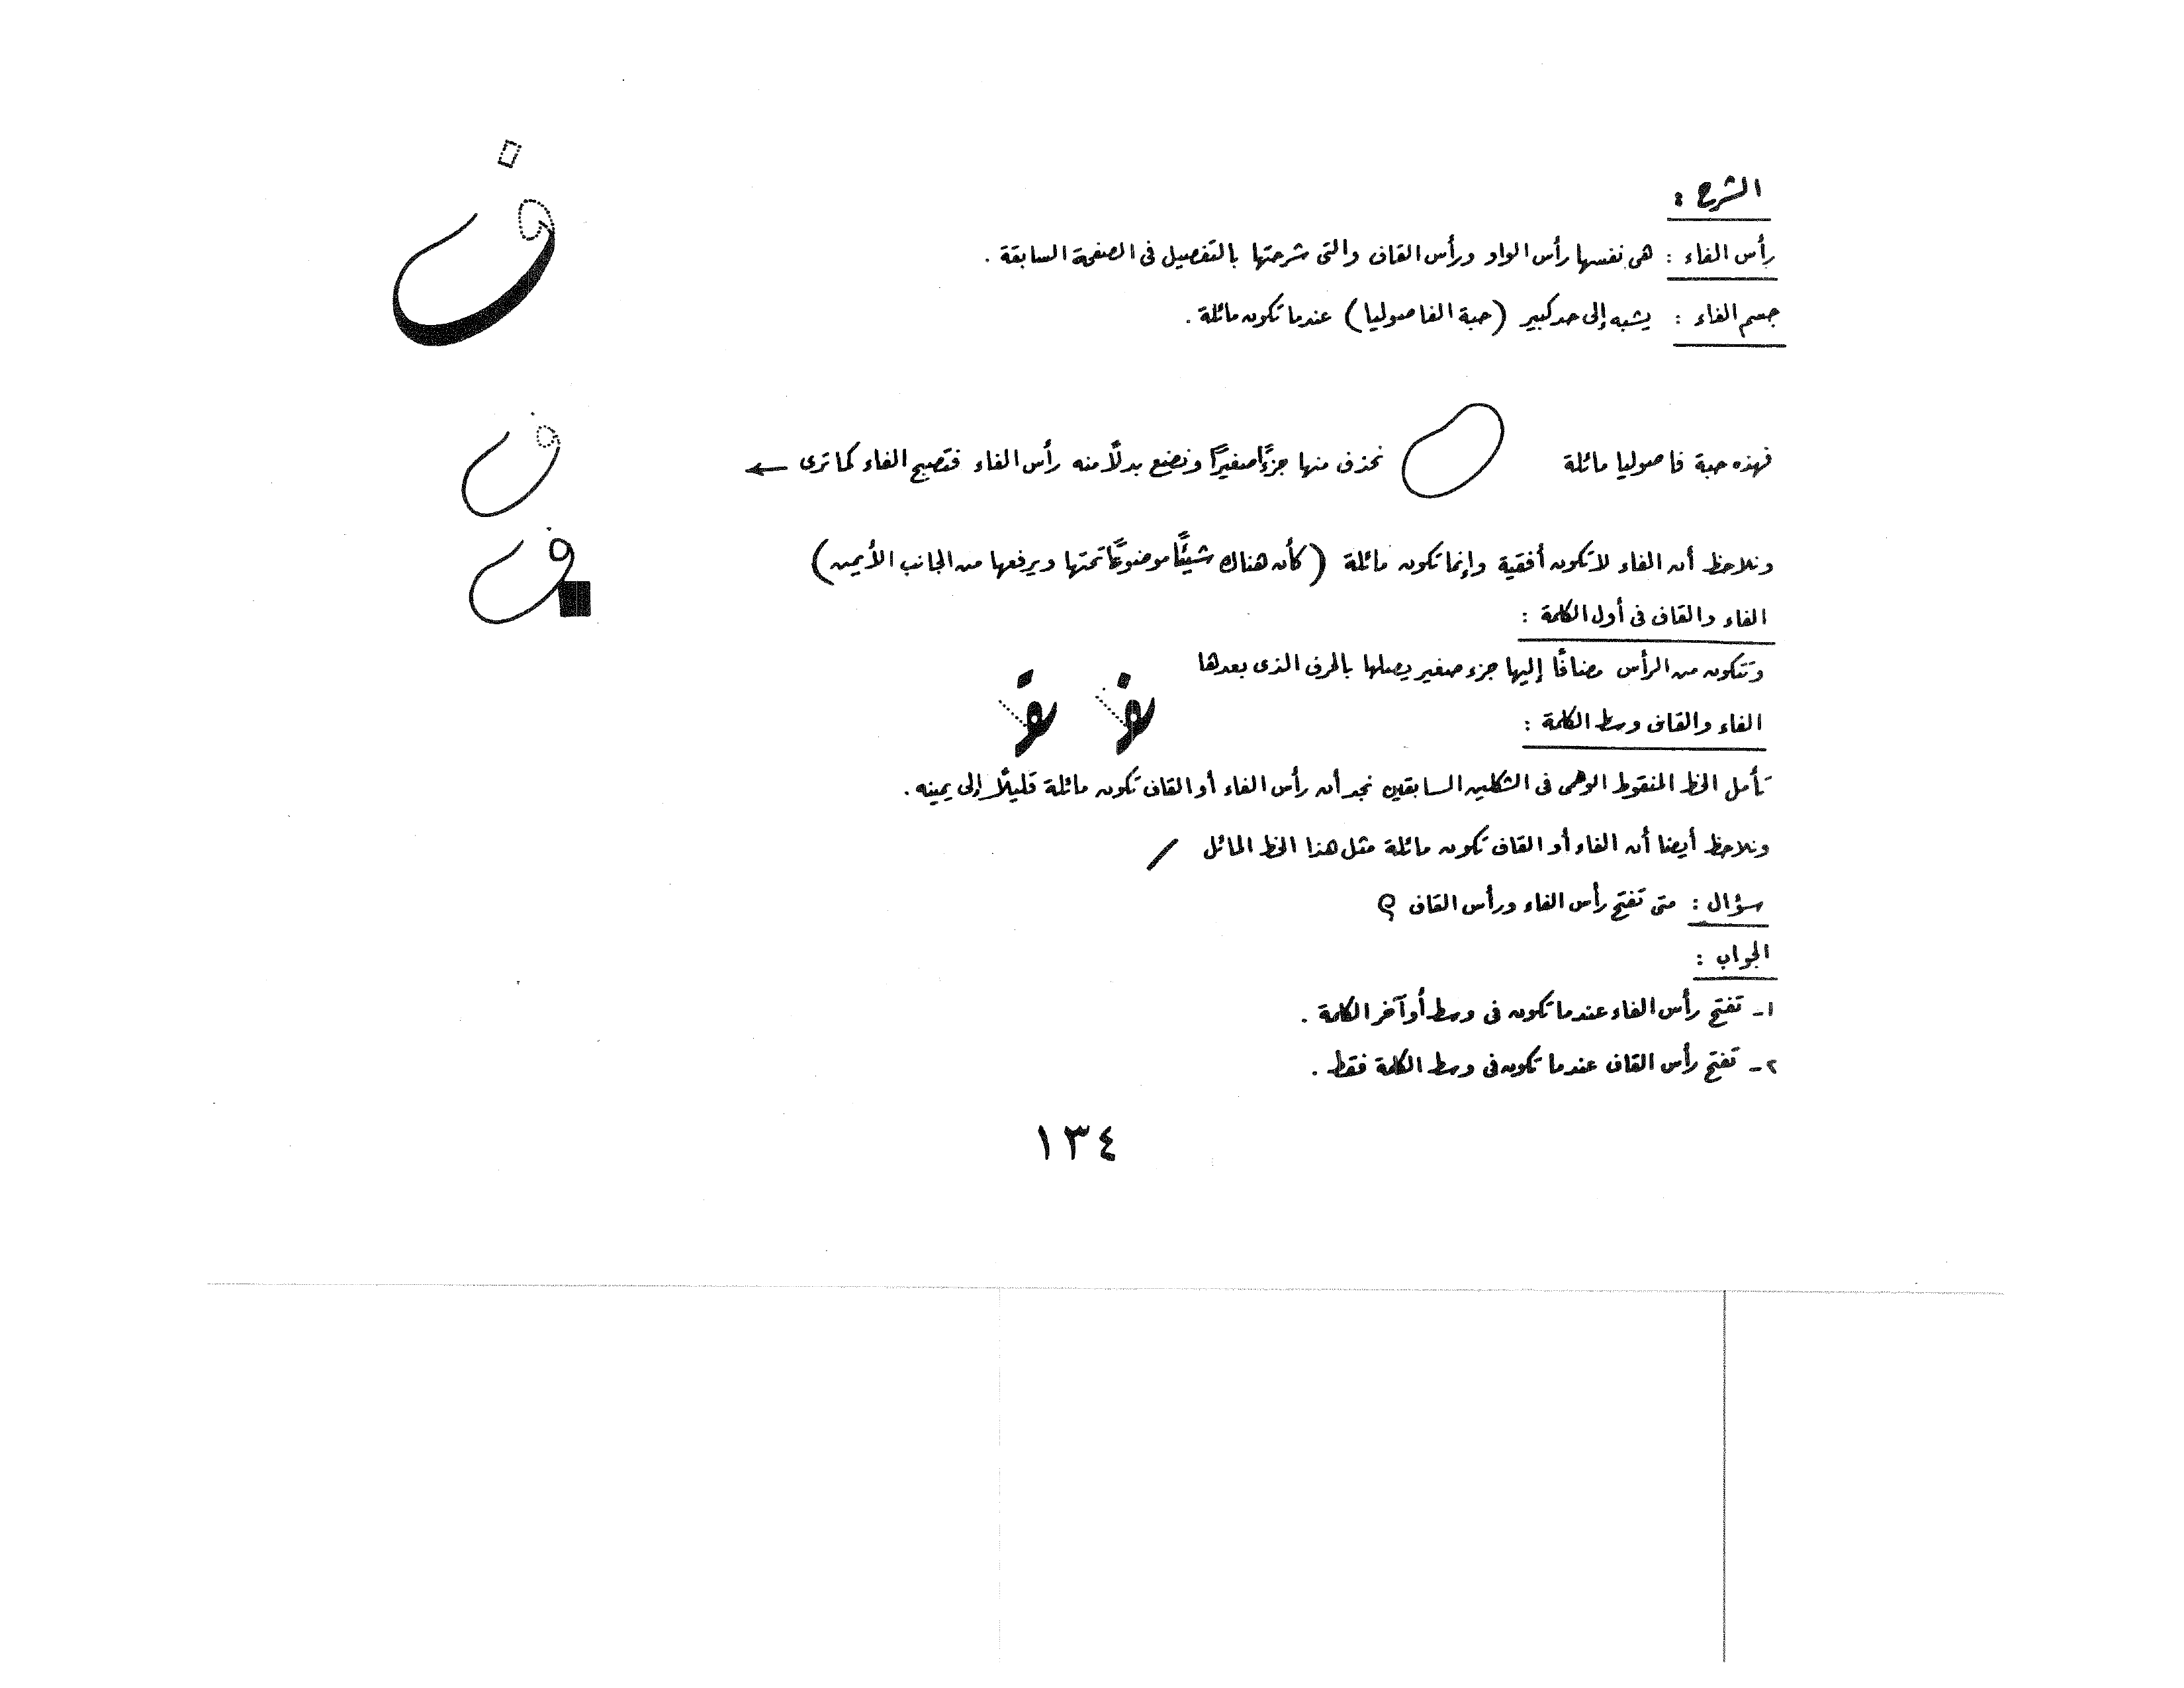 الشرح :
رأس الفاء : هى نفسها رأس الواو ورأس القاف والتى شرحتها بالتفصيل فى الصفحة السابقة .
جسم الفاء : يشبه إلى حد كبير (حبة الفاصوليا) عندما تكون مائلة .
فهذه حبة فاصوليا مائلة نحذف منها جزءًا صغيرًا ونضع بدلًا منه رأس الفاء فتصبح الفاء كما ترى ←
ونلاحظ أن الفاء لا تكون أفقية وإنما تكون مائلة (كأن هناك شيئًا موضوعًا تحتها ويرفعها من الجانب الأيمن)
الفاء والقاف فى أول الكلمة :
وتتكون من الرأس مضافًا إليها جزء صغير يصلها بالحرف الذى بعدها
الفاء والقاف وسط الكلمة :
تأمل الخط المنقوط الوهمى فى الشكلين السابقين نجد أن رأس الفاء أو القاف تكون مائلة قليلًا إلى يمينه .
ونلاحظ أيضا أن الفاء أو القاف تكون مائلة مثل هذا الخط المائل /
سؤال : متى تفتح رأس الفاء ورأس القاف ؟
الجواب :
١- تفتح رأس الفاء عندما تكون فى وسط أو آخر الكلمة .
٢- تفتح رأس القاف عندما تكون فى وسط الكلمة فقط .
١٣٤